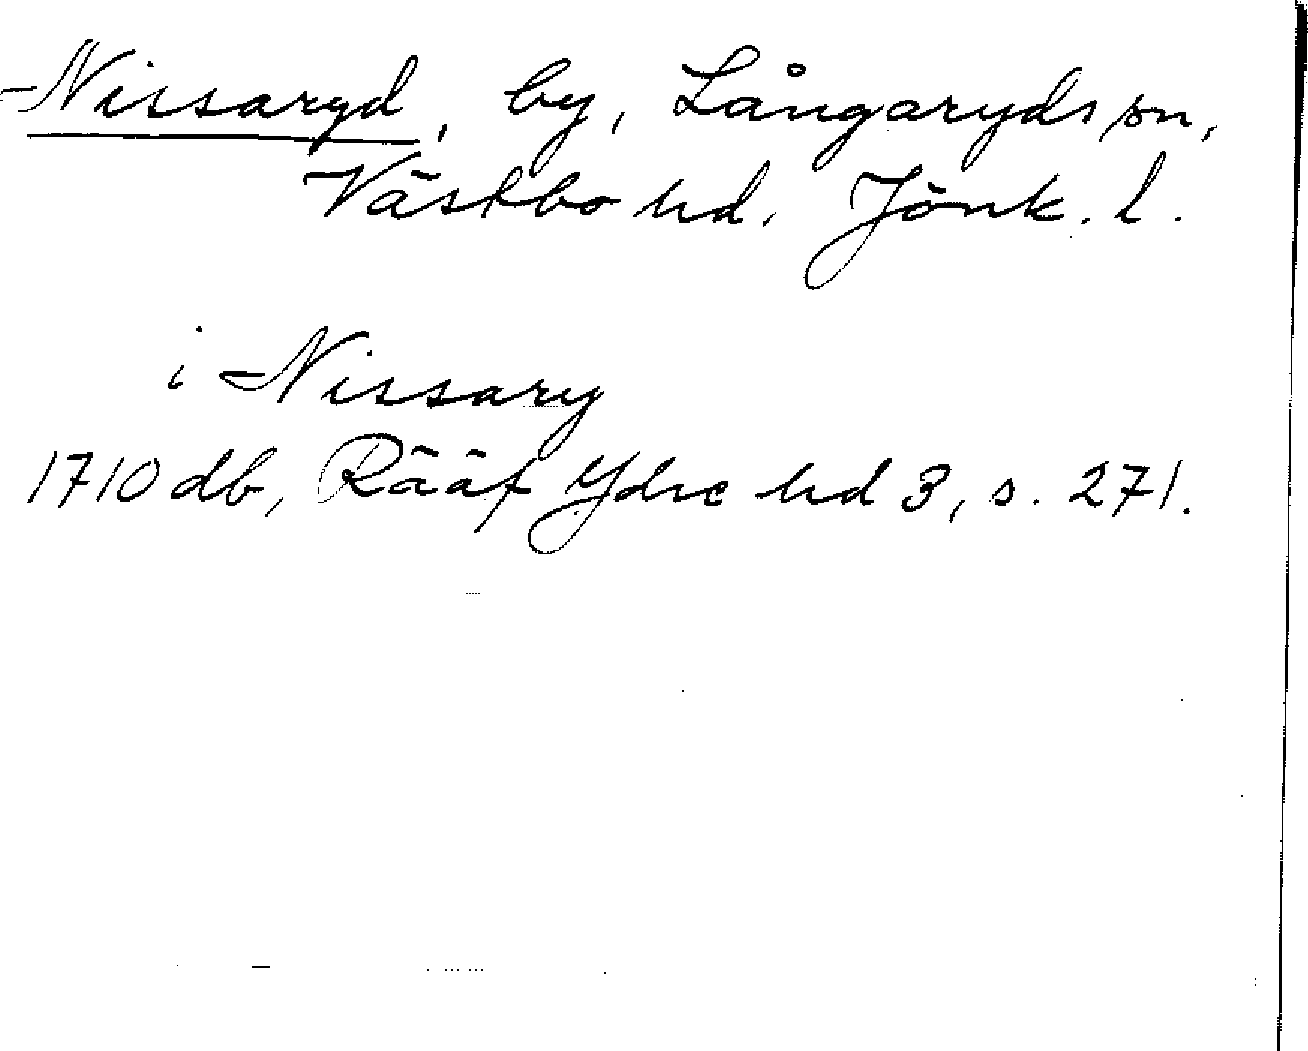 Nissaryd, by, Långaryds sn,
Västbo hd. Jönk. l.
i Nissary
1710 db, Rääf Ydre hd 3, s. 271.